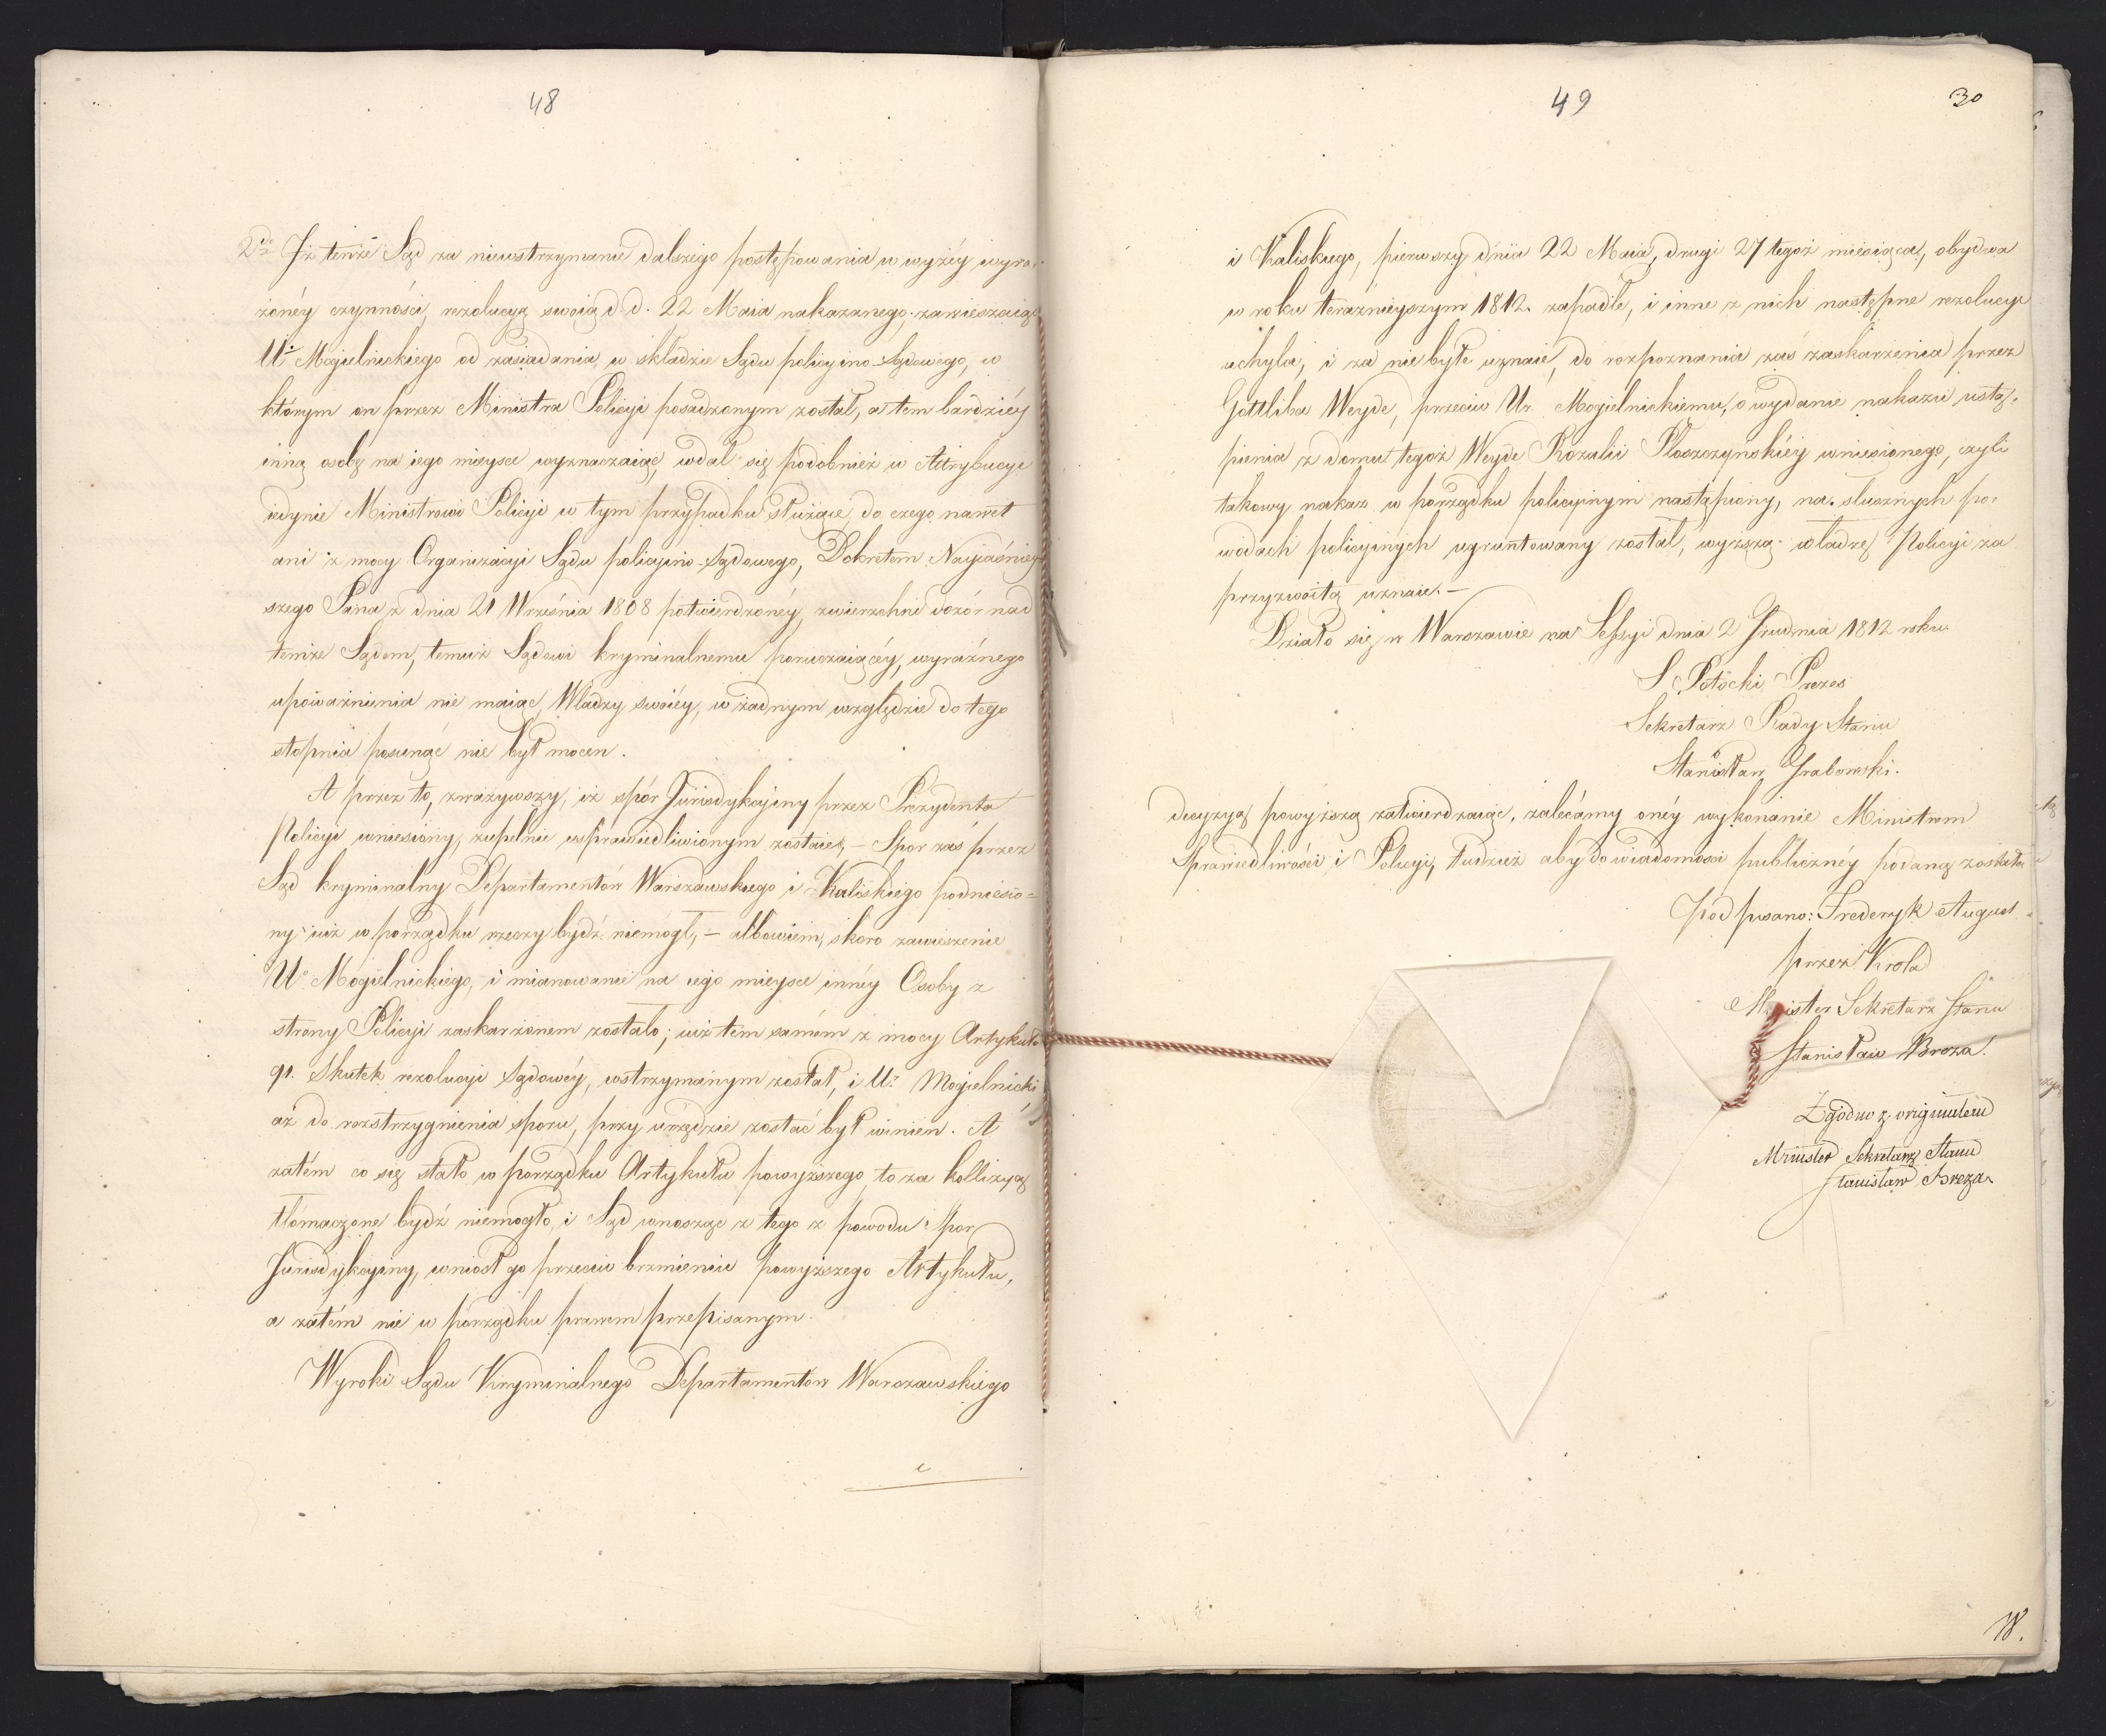 48
2do Iż tenże Sąd za niewstrzymanie dalszego postępowania w wyżéy wyra-
żonéy czynności, rezolucyą swoią d. d. 22 Maia nakazanego, zawieszaiąc
Ur Mogielnickiego od zasiadania w składzie Sądu policyino-Sądowego, w
którym on przez Ministra Policyi posadzonym został, a tem bardziéy
inną osobę na iego mieysce wyznaczaiąc, wdał się podobnież w Attrybucye
iedynie Ministrowi Policyi w tym przypadku służące, do czego nawet
ani z mocy Organizacyi Sądu policyino-Sądowego, Dekretem Nayiaśniey-
szego Pana z dnia 21 Września 1808 potwierdzonéy, zwierzchni dozór nad
temże Sądem, temuż Sądowi kryminalnemu poruczaiącéy, wyraźnego
upoważnienia nie maiąc, Władzy swoiéy, w żadnym względzie do tego
stopnia posunąć nie był mocen.
A przez to, zważywszy, iż spór Jurisdykcyiny przez Prezydenta
Policyi wniesiony, zupełnie usprawiedliwionym zostaie, – Spor zaś przez
Sąd kryminalny Departamentów Warszawskiego i Kaliskiego podniesio-
ny iuż w porządku rzeczy bydź niemógł, – albowiem, skoro zawieszenie
Uo Mogielnickiego, i mianowanie na iego mieysce innéy Osoby z
strony Policyi zaskarżonem zostało; iuż tem samém z mocy Artykułu
91. Skutek rezolucyi Sądowéy, wstrzymanym został, i Ur Mogielnicki
aż do rozstrzygnienia sporu, przy urzędzie zostać był winien. A
zatém co się stało w porządku Artykułu powyższego, to za kollizyą
tłómaczone bydź niemogło, i Sąd wnosząc z tego z powodu Spor
Jurisdykcyiny, wniosł go przeciw brzmieniu powyższego Artykułu,
a zatém nie w porządku prawem przepisanym.
Wyroki Sądu Kryminalnego Departamentów Warszawskiego
49
30
i Kaliskiego, pierwszy dnia 22 Maia, drugi 27 tegoż miesiąca, obydwa
w roku teraźnieyszym 1812. zapadłe, i inne z nich następne rezolucye
uchyla, i za niebyłe uznaie, do rozpoznania zaś zaskarżenia przez
Gottliba Weyde, przeciw Ur. Mogielnickiemu, o wydanie nakazu ustą-
pienia z domu tegoż Weyde Rozalii Płoszczynskiéy wniesionego, czyli
takowy nakaz w porządku policyinym nastąpiony, na słusznych po-
wodach policyinych ugruntowany został, wyższą władzę Policyi za
przyzwoitą uznaie. –
Działo się w Warszawie na Sessyi dnia 2 Grudnia 1812 roku.
S. Potocki Prezes
Sekretarz Rady Stanu
Stanisław Grabowski.
decyzyą powyższą zatwierdzaiąc, zalecámy onéy wykonanie Ministrom
Sprawiedliwości i Policyi, tudzież aby do wiadomości publicznéy podaną została
Podpisano: Frederyk August.
przez Krola
Minister Sekretarz Stanu
Stanisław Breza.
Zgodno z originałem
Minister Sekretarz Stanu
Stanisław Breza.
W.